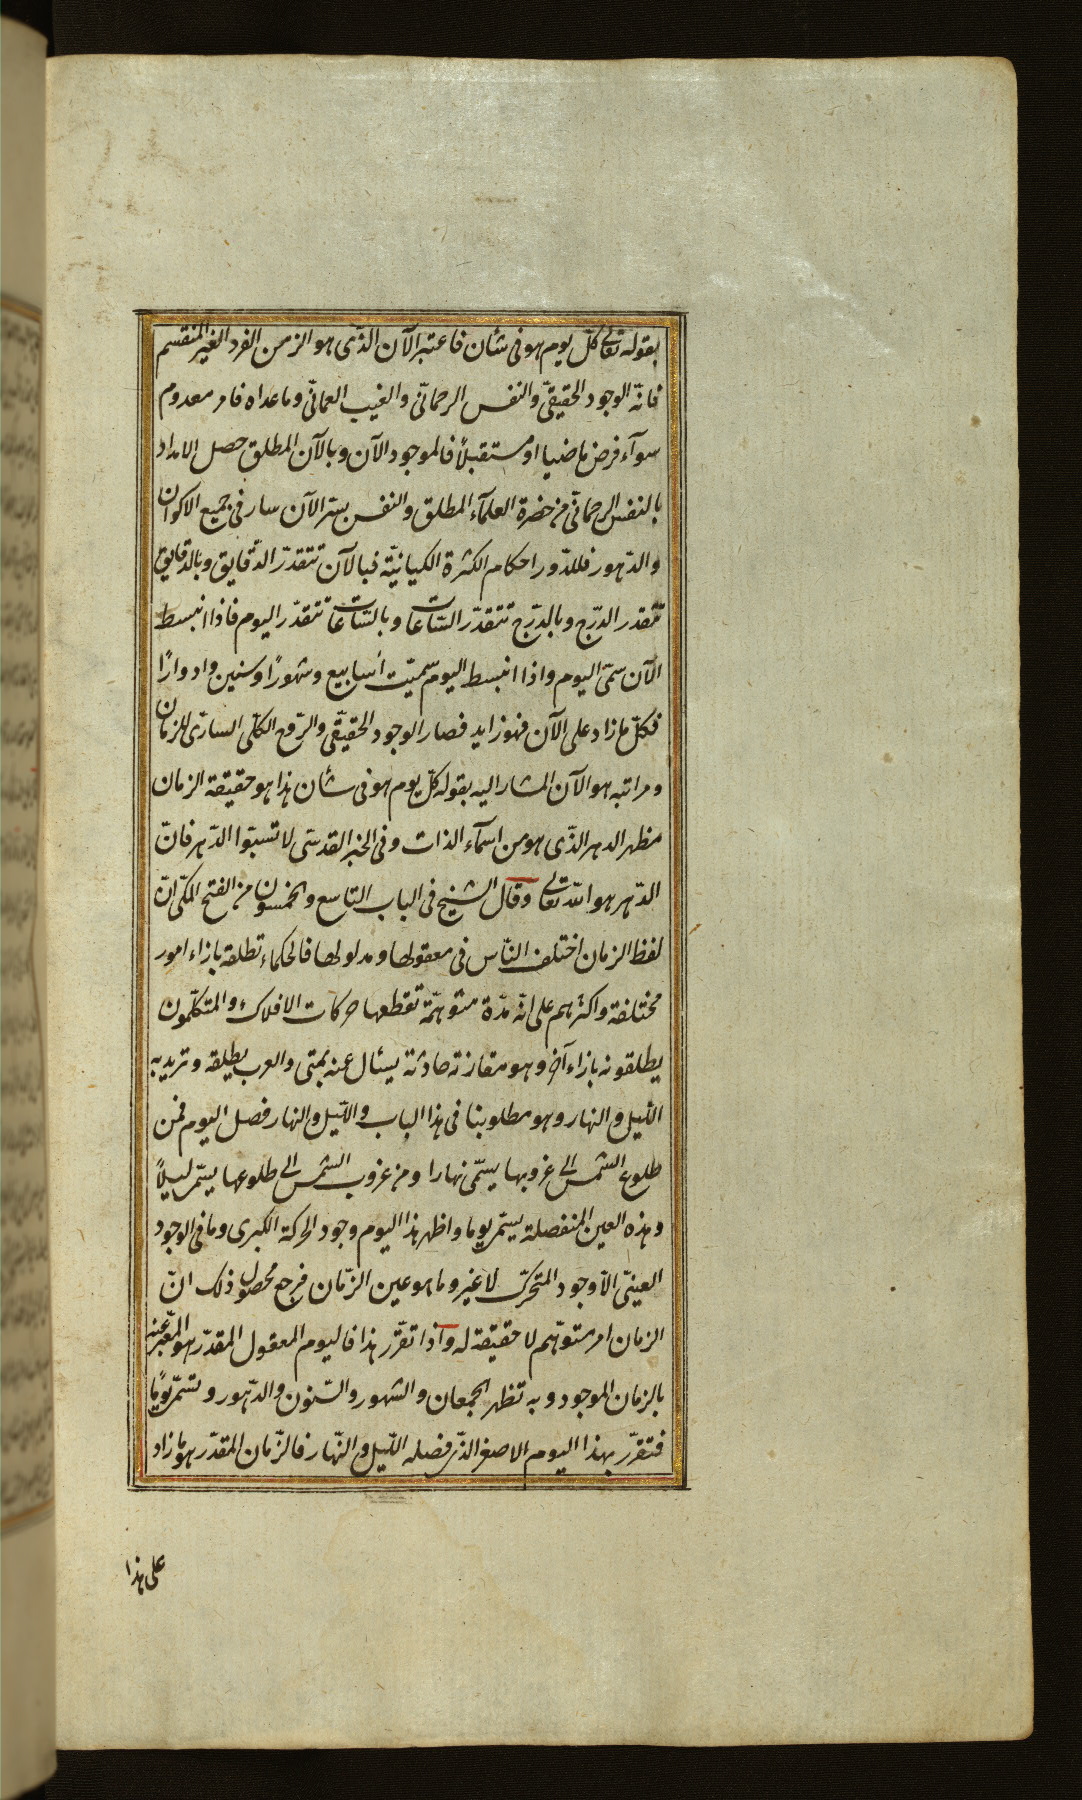 بقوله تعالى كلّ يوم هو فى شأن فاعتبر الآن الذّى هو الزمن الفرد الغير المنقسم
فانّه الوجود الحقيقىّ والنفس الرحمانّى والغيب العمائّى وما عداه فامر معدوم
سوآء فرض ماضيا او مستقبلاً فالموجود الآن وبالآن المطلق حصل الامداد
بالنفس الرحمانّى من حضرة العلمآء المطلق والنفس بسّر الآن سار فى جميع الاكوان
والدّهور فللدّور احكام الكثرة الكيانيّة فبالآن تتقدّر الدّقايق وبالدقايق
تتقدر الدرّج وبالدرّج تتقدّر السّاعات وبالسّاعات تتقدّر اليوم فاذا انبسط
الآن سمّى اليوم واذا انبسط اليوم سمّيت أسابيع وشهورًا وسنين وادوارًا
فكلّ ما زاد على الآن فهو زايد فصار الوجود الحقيقّى والرّوح الكلّى السارّى للزمان
ومراتبه هو الآن المشار اليه بقوله كلّ يوم هو فى شأن هذا هو حقيقة الزمان
مظهر الدهر الذّى هو من اسمآء الذات وفى الخبر القدسّى لا تسبّوا الدّهر فانّ
الدّهر هو الله تعالى وقال الشيخ فى الباب التاسع والخمسون من الفتح المكّى انّ
لفظ الزمان اختلف النّاس فى معقولها ومدلولها فالحكماء تطلقه بازاء امور
مختلفة واكثرهم على انّه مدّة متوهمّة تقطعها حركات الافلاك والمتكلّمون
يطلقونه بازاء آخر وهو مقارنة حادثة يسئال عنه بمتى والعرب يطلقه وتريد به
اللّيل والنهار وهو مطلوبنا فى هذا الباب واللّيل والنهار فصل اليوم فمن
طلوع الشمس الى غروبها يسمّى نهارا ومن غروب الشمس الى طلوعها يسمّر ليلاً
وهذه العين المنفصلة يسمّر يوما واظهر هذا اليوم وجود الحركة الكبرى وما فى الوجود
العينّى الّا وجود المتحرّك لا غير وما هو عين الزّمان فرجع محصول ذلك انّ
الزمان امر متوهّم لا حقيقة له وآذا تقّرر هذا فاليوم المعقول المقدّر هو المعبّر عنه
بالزمان الموجود وبه تظهر الجمعان والشهور والسّنون والدّهور وتسمّر يومًا
فتقرّر بهذا اليوم الاصغر الذّى فصله اللّيل والنّهار فالزّمان المقدّر هو ما زاد
على هذا